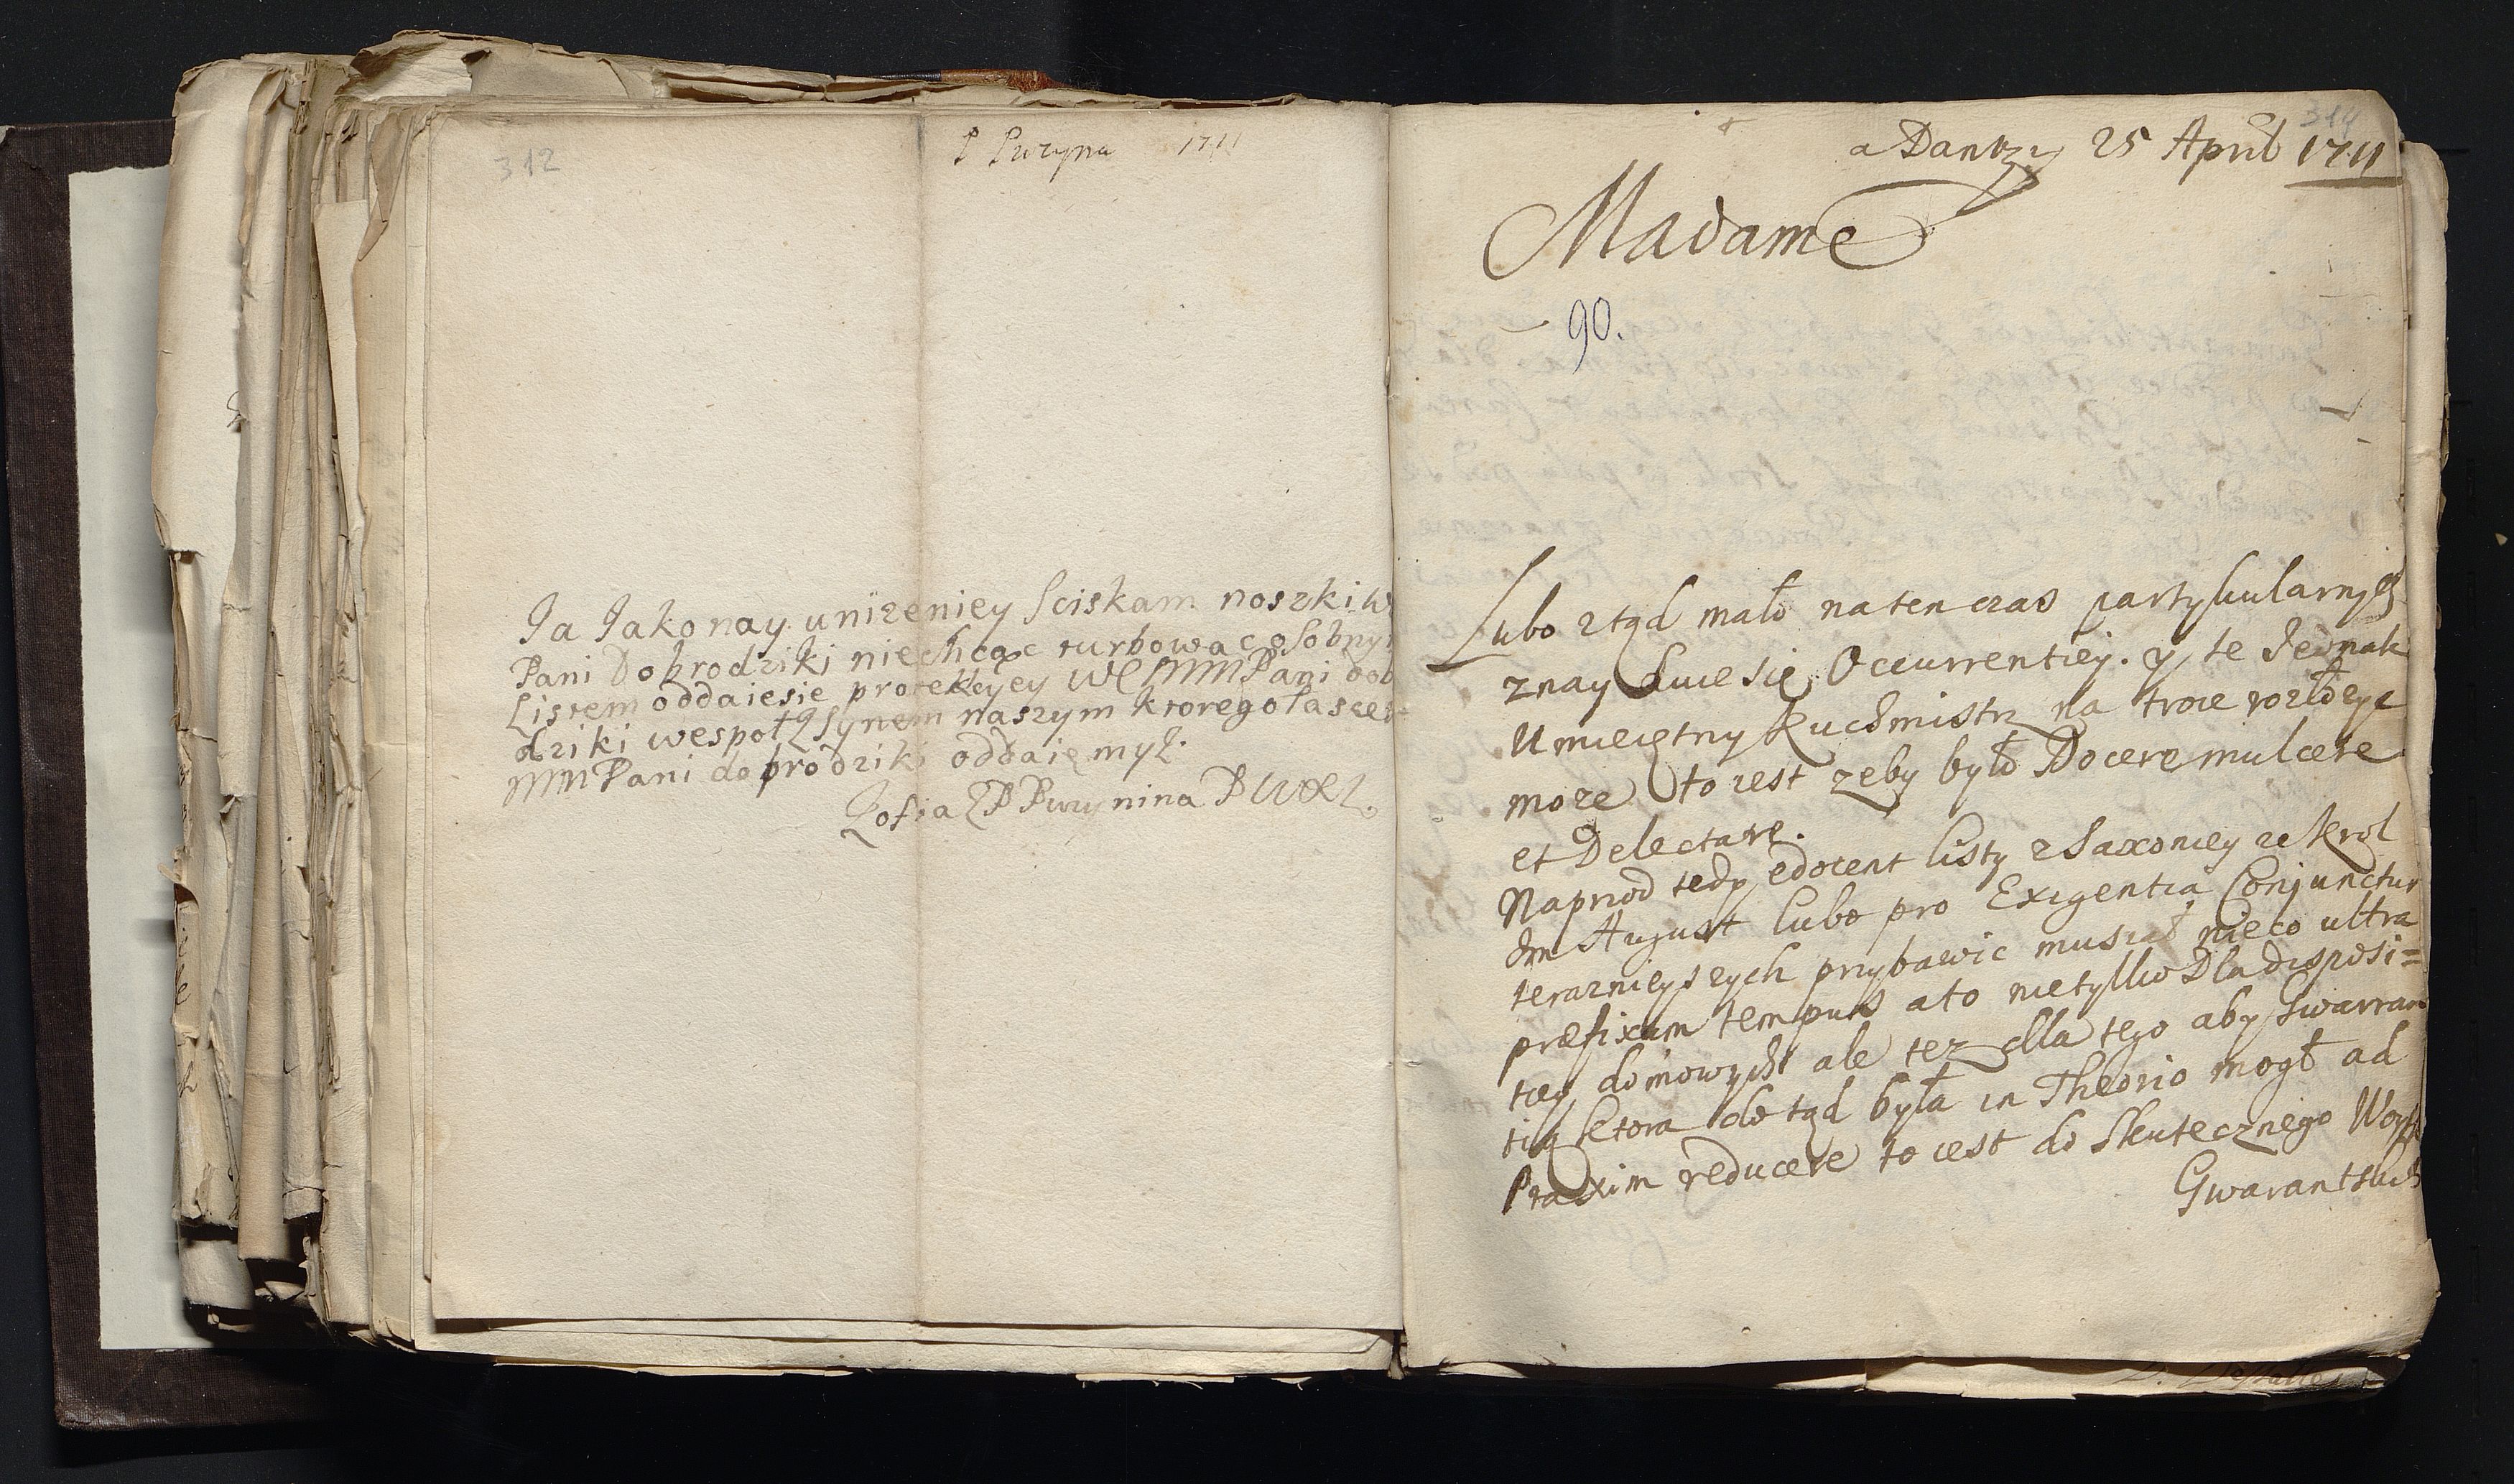 312
P Puzyna 1711
Ja Jako nay unizeniey sciskam noszki W
Pani Dobrodziki niechcąc turbowac osobnym
Listem oddaiesie protekcyey WMMPani dob
dziki wespoł Z synem naszym ktorego łascew
MMPani dobrodziki oddaięmyż.
Zofia Z P Puzynina P W X L.
314
a Dantzig 25 April 1711
Madame
90.
Lubo ztąd mało na ten czas partykularnych
znayduie się Occurrentiey. y te Jednak
Umieiętny Kuchmistrz na troie rozłożyc
moze to iest zeby było Docere mulcere
et Delectare.
Naprzod tedy edocent listy z Saxoniey ze Krol
Jm August lubo pro Exigentia Conjunctur
teraznieyszych przybawic musiał nieco ultra
præfixum tempus a to nietylko Dla disposi=
tiey domowych ale tez dla tego aby Gwarran
tią ktora do tąd była in Theorio mogł ad
Praxim reducere to iest do Skutecznego Woysk
Gwarantskich